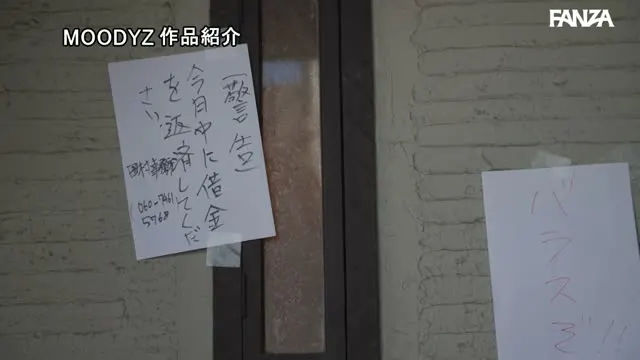 MOODYZ 作品紹介
FANZA
[警告]
今月中に借金
を返済してくだ
さい
060-7461
5768
バラスぞ!!